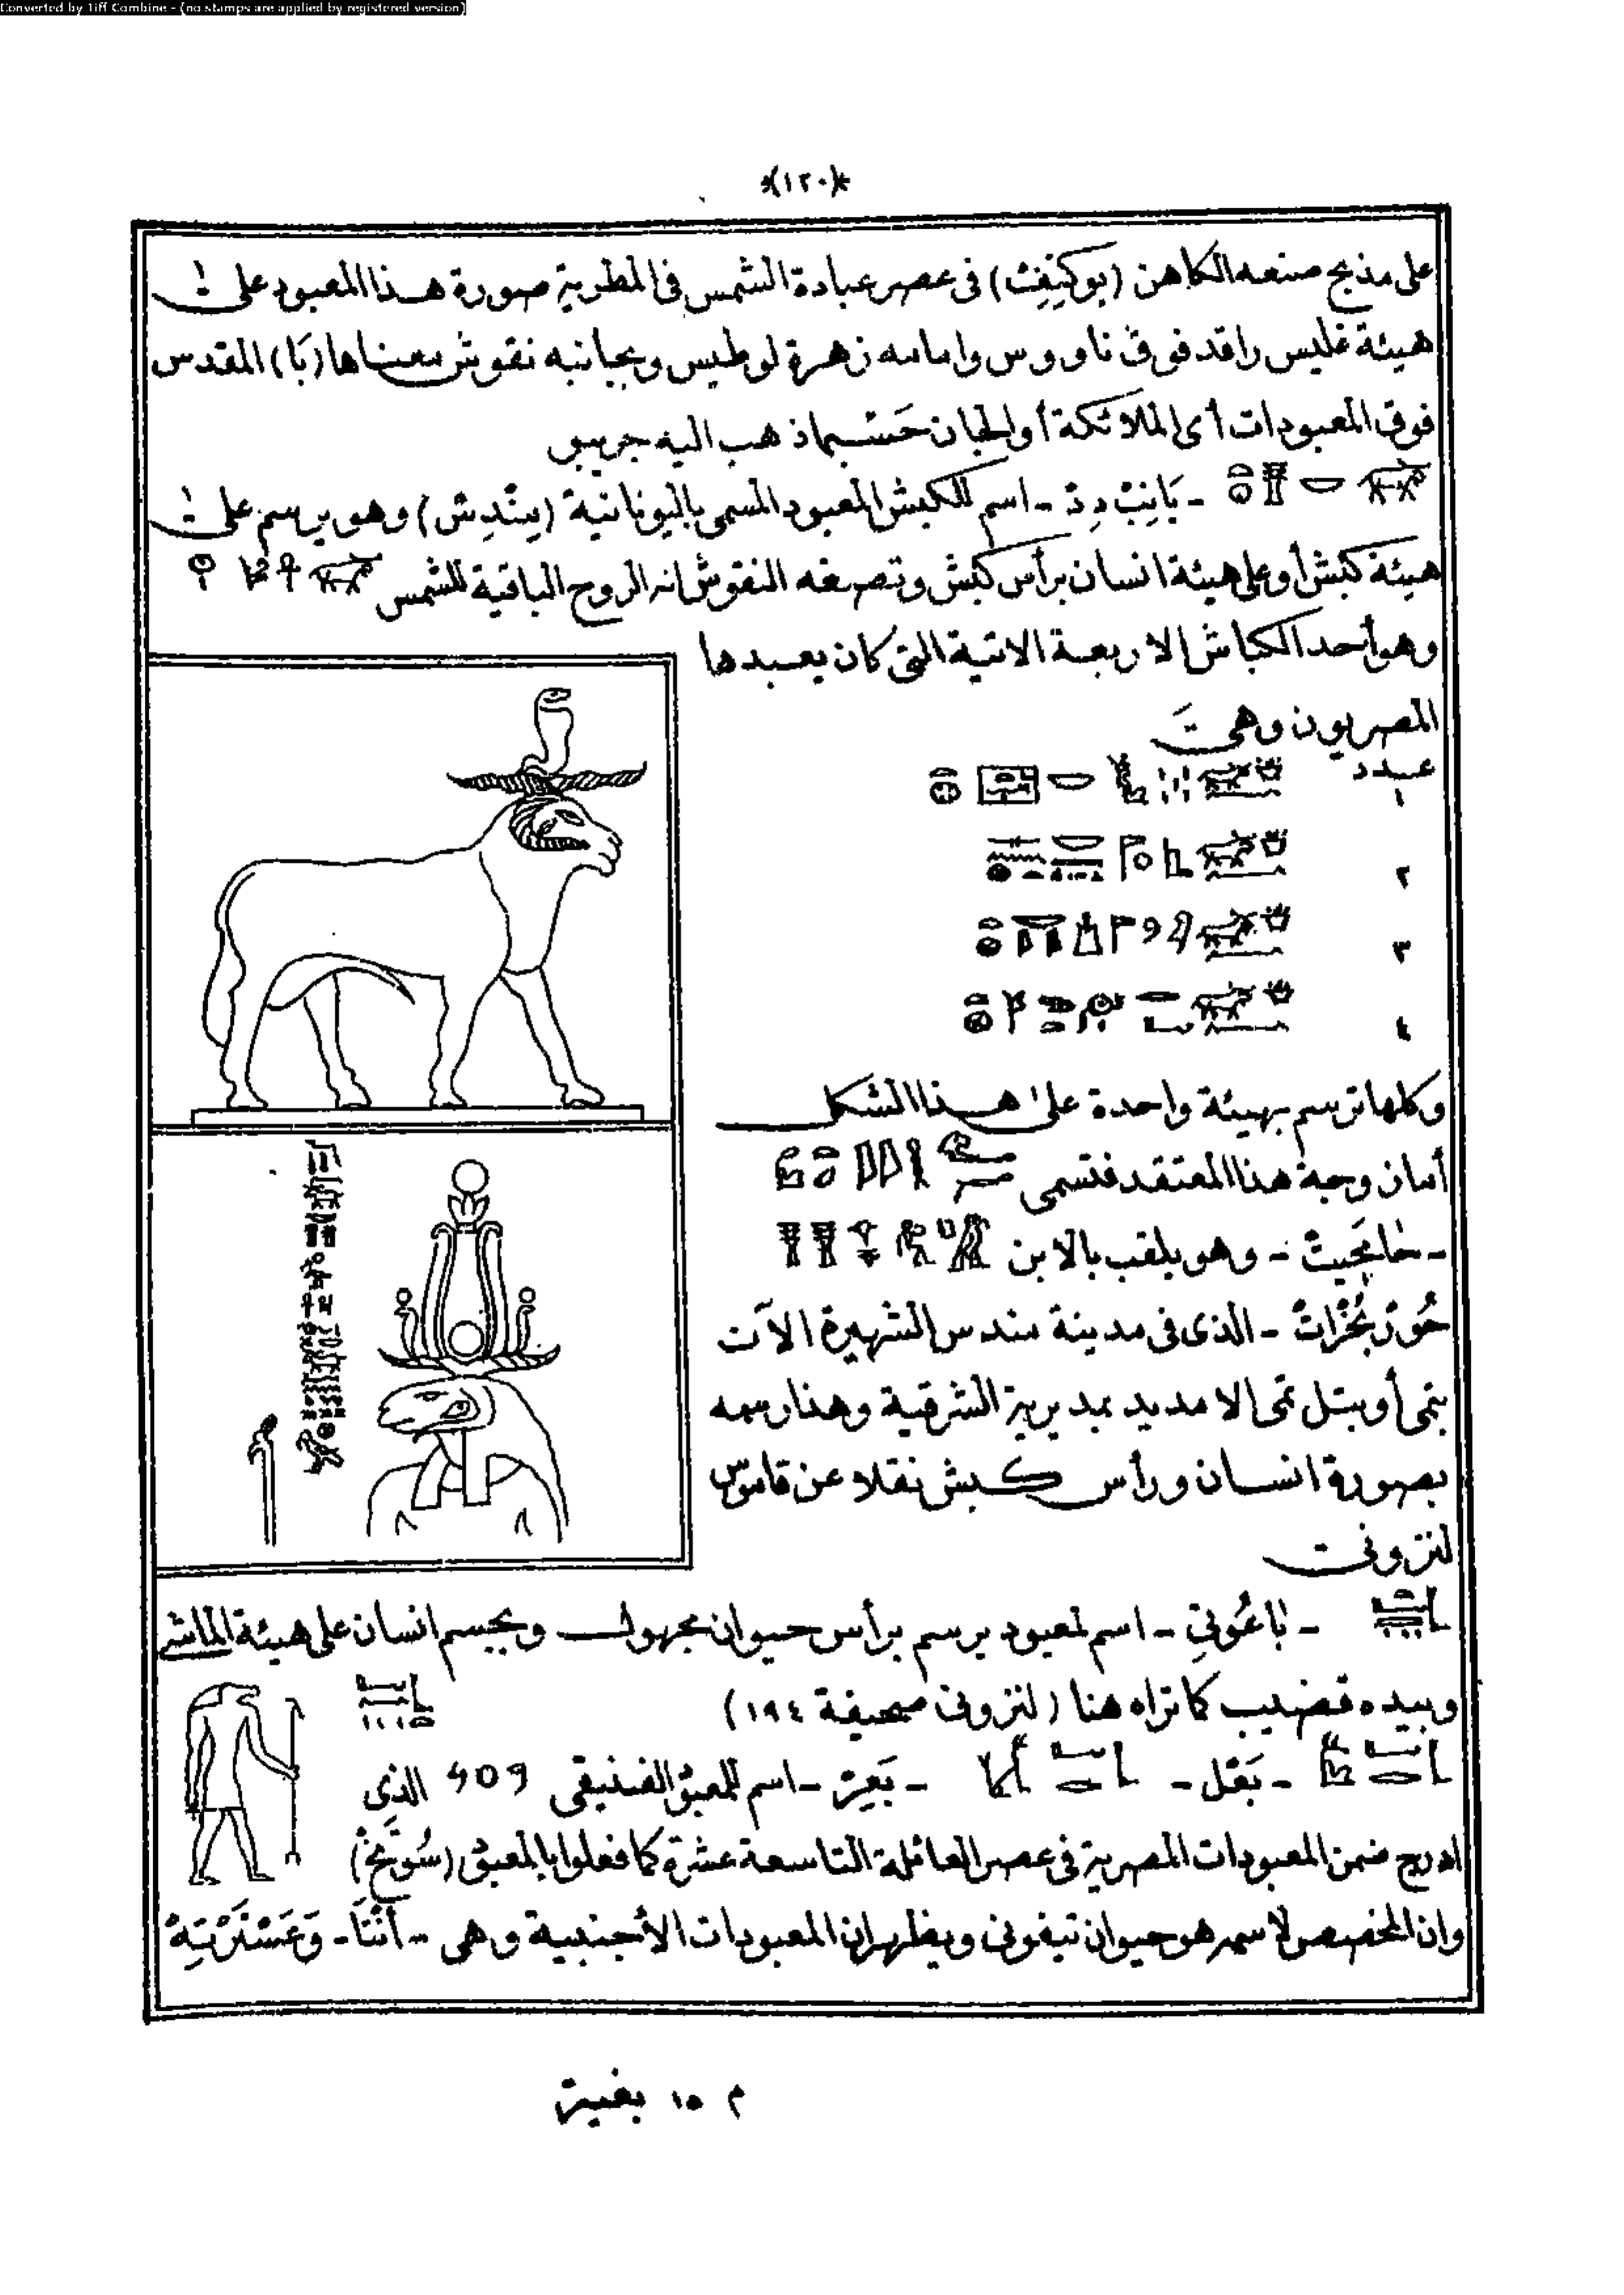 Converted by Tiff Combine - (no stamps are applied by registered version)
*(١٢٠)*
على مذبح صنعه الكاهن (بوكنفث) فى عصر عبادة الشمس فى المطرية صورة هذا المعبود على
هيئة راقد فوق ناووس وامامه زهرة لوطيس وبجانبه نقوش معناها (بَا) المقدس
فوق المعبودات أى الملائكة أو الجان حَسْبما ذهب اليه
- بَانِبْ دِدْ - اسم للكبش المعبود المسمى باليونانية وهو يرسم على
هيئة كبش أو على هيئة انسان برأس كبش وتصفه النقوش انه الروح الباقية للشمس
وهو أحد الكباش الاربعة الاتية التى كان يعبدها
المصريون وهى
عدد
١
٢
٣
٤
وكلها ترسم بهيئة واحدة على هذا الشكل
أمان وجة هذا المعتقد فتسمى
- - وهو يلقب بالابن
- الذى فى مدينة مندس الشهيرة الآن
بتمى أو بتل تمى الامديد بمديرية الشرقية وهذا رسمه
بصورة انسان ورأس كبش نقلا عن قاموس
لنزونى
- بَاعُونِى - اسم لمعبود يرسم برأس حيوان مجهول وبجسم انسان على هيئة الماشى
وبيده قضيب كما تراه هنا (لنزونى صحيفة ١٩٤)
- بَعَل - - بَعِر - اسم للمعبود الفنيقى الذى
ادرج ضمن المعبودات المصرية فى عصر العائلة التاسعة عشرة كما فعلوا بالمعبود (سُوتَخْ)
وان المخصص لاسمه هو حيوان تيفونى ويظهر ان المعبودات الأجنبية وهى - أَنْتَا -
م ١٥ بغية